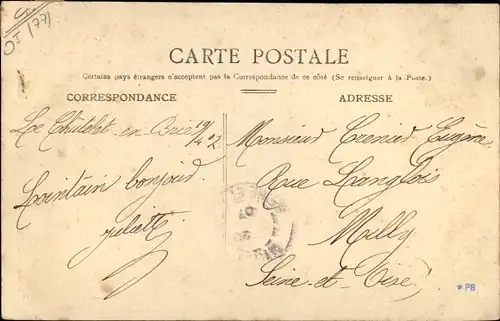 (77)
CARTE POSTALE
Certains pays étrangers n'acceptent pas la Correspondance de ce côté (Se renseigner à la Poste.)
CORRESPONDANCE
ADRESSE
Le Châtelet-en-Brie 19/4
Lointain bonjour.
Juliette
Monsieur Eugène
Rue Langlois
Milly
Seine-et-Oise
*PB